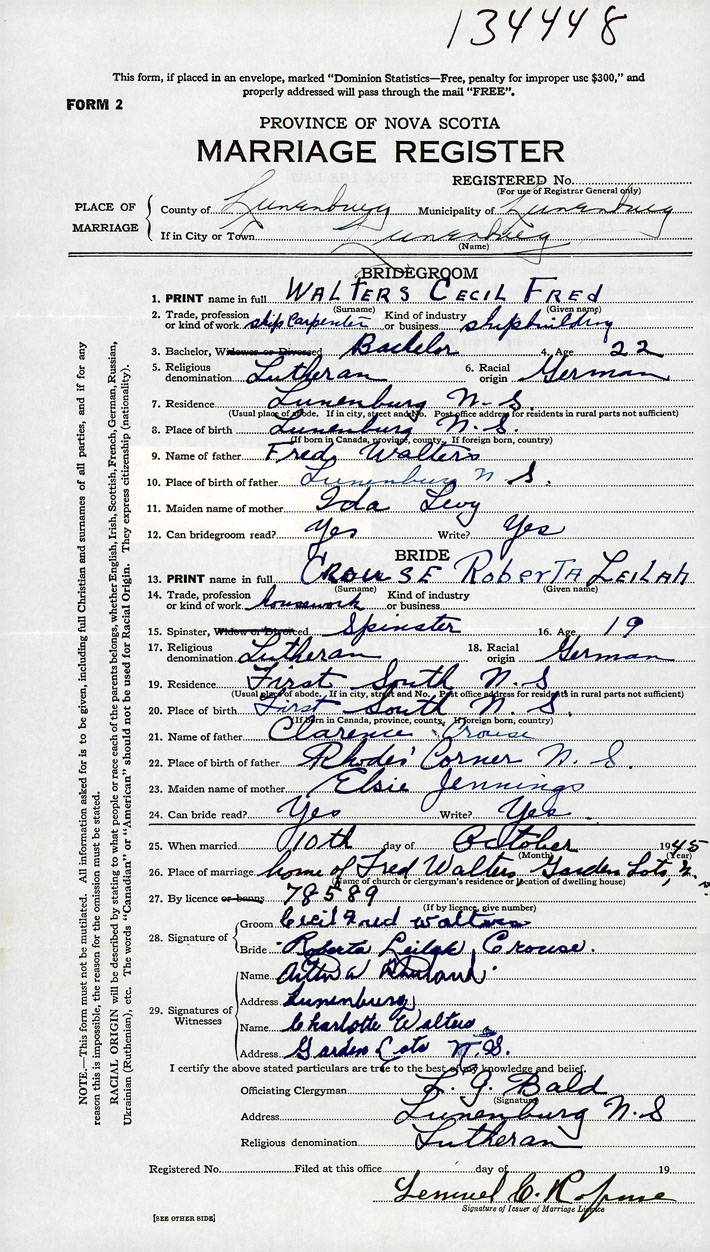 134448
This form, if placed in an envelope, marked “Dominion Statistics—Free, penalty for improper use $300,” and
properly addressed will pass through the mail “FREE”.
FORM 2
PROVINCE OF NOVA SCOTIA
MARRIAGE REGISTER
REGISTERED No.
(For use of Registrar General only)
PLACE OF MARRIAGE
County of Lunenburg Municipality of Lunenburg
If in City or Town Lunenburg
(Name)
BRIDEGROOM
1. PRINT name in full WALTERS CECIL FRED
(Surname) (Given name)
2. Trade, profession or kind of work ship carpenter Kind of industry or business shipbuilding
3. Bachelor, Widower or Divorced Bachelor 4. Age 22
5. Religious denomination Lutheran 6. Racial origin German
7. Residence Lunenburg N. S.
(Usual place of abode. If in city, street and No. Post office address for residents in rural parts not sufficient)
8. Place of birth Lunenburg N. S.
(If born in Canada, province, county. If foreign born, country)
9. Name of father Fred Walters
10. Place of birth of father Lunenburg N S.
11. Maiden name of mother Ida Levy
12. Can bridegroom read? Yes Write? Yes
BRIDE
13. PRINT name in full CROUSE ROBERTA LEILAH
(Surname) (Given name)
14. Trade, profession or kind of work housework Kind of industry or business
15. Spinster, Widow or Divorced Spinster 16. Age 19
17. Religious denomination Lutheran 18. Racial origin German
19. Residence First South N. S.
(Usual place of abode. If in city, street and No. Post office address for residents in rural parts not sufficient)
20. Place of birth First South N. S.
(If born in Canada, province, county. If foreign born, country)
21. Name of father Clarence Crouse
22. Place of birth of father Rhodes' Corner N. S.
23. Maiden name of mother Elsie Jennings
24. Can bride read? Yes Write? Yes.
25. When married 10th day of October 1945
(Month) (Year)
26. Place of marriage home of Fred Walters Garden Lots, N.
(Name of church or clergyman's residence or location of dwelling house)
27. By licence or banns 78589
(If by licence, give number)
28. Signature of
Groom Cecil Fred Walters
Bride Roberta Leilah Crouse.
29. Signatures of Witnesses
Name
Address Lunenburg
Name Charlotte Walters
Address Garden Lots N.S.
I certify the above stated particulars are true to the best of my knowledge and belief.
Officiating Clergyman L. G. Bald
(Signature)
Address Lunenburg N. S
Religious denomination Lutheran
Registered No. Filed at this office day of 19
Lemuel C.
Signature of Issuer of Marriage Licence
[SEE OTHER SIDE]
NOTE.—This form must not be mutilated. All information asked for is to be given, including full Christian and surnames of all parties, and if for any
reason this is impossible, the reason for the omission must be stated.
RACIAL ORIGIN will be described by stating to what people or race each of the parents belongs, whether English, Irish, Scottish, French, German, Russian,
Ukrainian (Ruthenian), etc. The words “Canadian” or “American” should not be used for Racial Origin. They express citizenship (nationality).